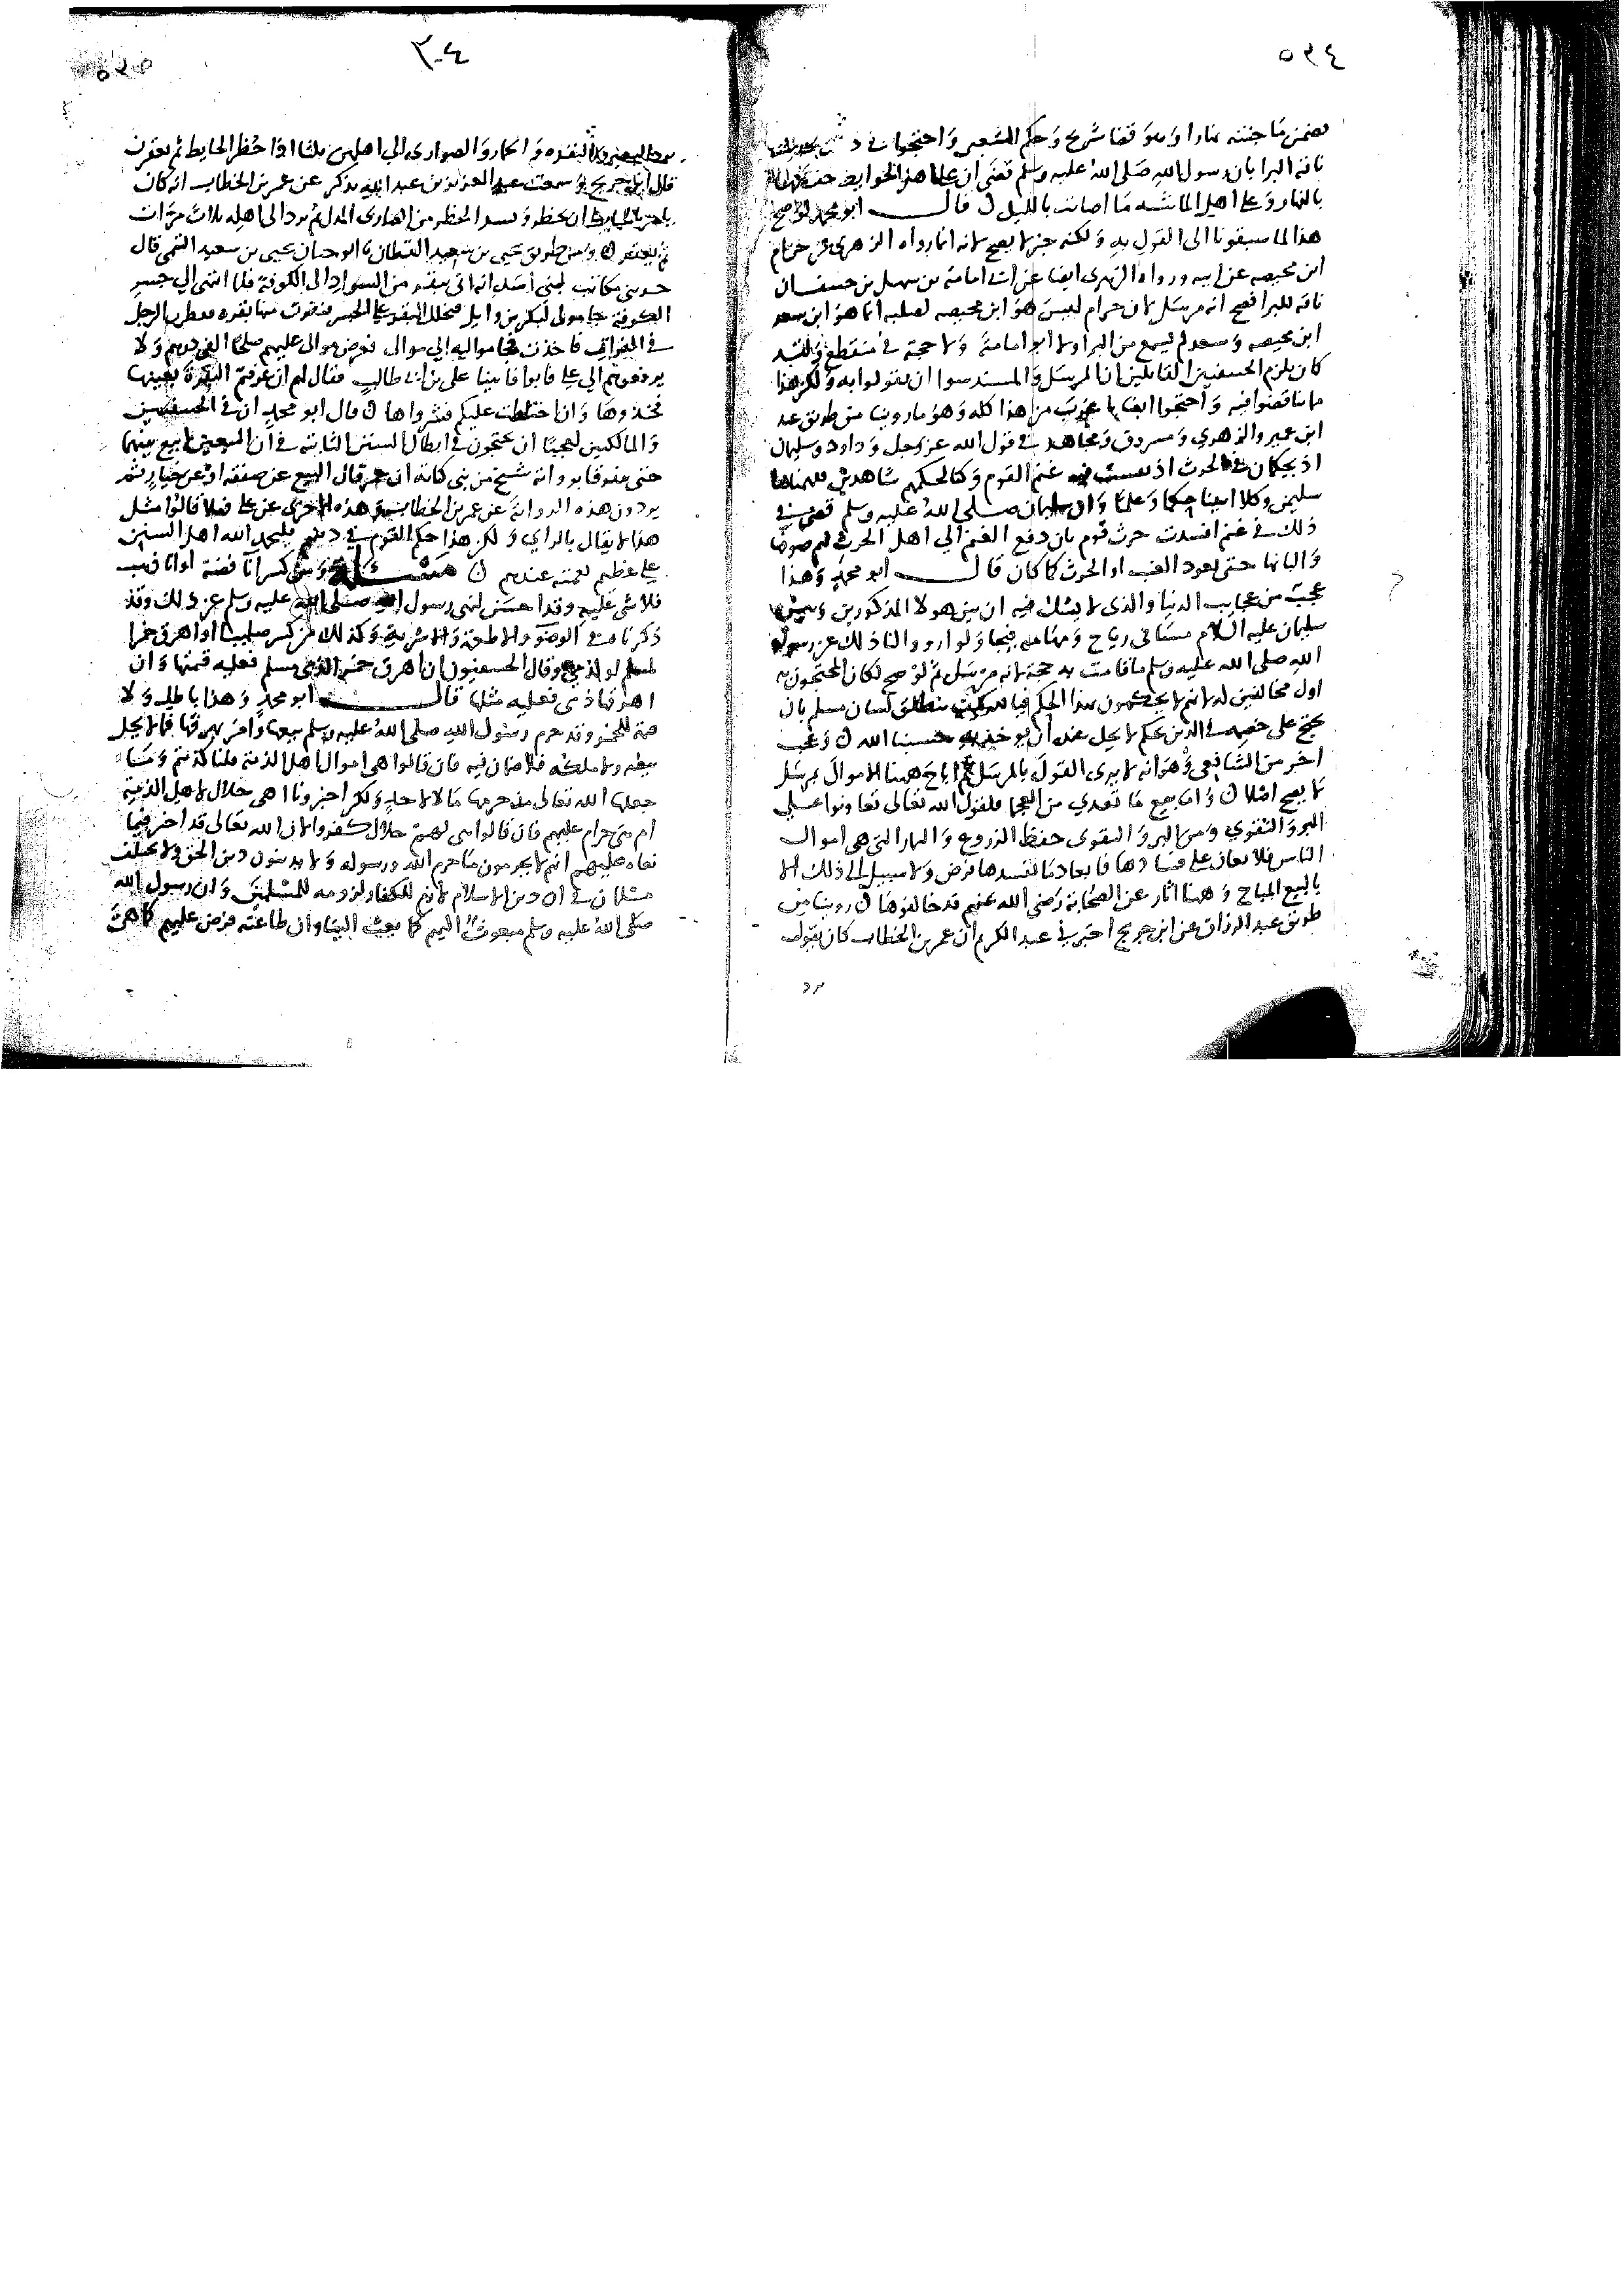 ٥٣٤
يضمن ما جنته نهارا وبهذا قضا شريح وحكم الشعبي واحتجوا في ذلك بحديث
ناقة البرا بان رسول الله صلى الله عليه وسلم قضى ان على اهل الحوايط حفظها
بالنهار وعلى اهل الماشية ما اصابت بالليل ن قال ابو محمد لو صح
هذا لما سبقونا الى القول به ولكنه خبر لا يصح لانه انما رواه الزهري عن حرام
ابن محيصة عن ابيه ورواه الزهري ايضا عن ابي امامة بن سهل بن حنيف ان
ناقة للبرا فصح انه مرسل لان حرام ليس هو ابن محيصة لصلبه انما هو ابن سعد
ابن محيصة وسعد لم يسمع من البرا ولا ابو امامة ولا حجة في منقطع ولقد
كان يلزم الحنفيين القايلين ان المرسل والمسند سوا ان يقولوا به ولكن هذا
مما تناقضوا فيه واحتجوا ايضا باغرب من هذا كله وهو ما روينا من طريق عبد
ابن عمير والزهري ومسروق ومجاهد في قول الله عز وجل وداود وسليمان
اذ يحكمان في الحرث اذ نفشت فيه غنم القوم وكنا لحكمهم شاهدين ففهمناها
سليمن وكلا اتينا حكما وعلما وان سليمان صلى الله عليه وسلم قضى في
ذلك في غنم افسدت حرث قوم بان دفع الغنم الى اهل الحرث لهم صوفها
والبانها حتى يعود العنب او الحرث كما كان قال ابو محمد وهذا
عجب من عجايب الدنيا والذي لا يشك فيه ان بين هولا المذكورين وبين
سليمان عليه السلام مسافى رياح ومهامه فيحا ولو ارووا لنا ذلك عن رسول
الله صلى الله عليه وسلم ما قامت به حجة لانه مرسل ثم لو صح لكان المحتجون به
اول مخالفين له لانهم لا يحكمون بهذا الحكم فيا لله كيف ينطلق لسان مسلم بان
يحتج على خصمه في الدين بحكم لا يحل عنده ان يوخذ به حسبنا الله ن وعجب
اخر من الشافعي وهو انه لا يرى القول بالمرسل ثم اباح ههنا الاموال بمرسل
لا يصح اصلا ن وان بيع ما تعدي من العجما فلقول الله تعالى تعاونوا على
البر والتقوى ومن البر والتقوى حفظ الزروع والثمار التي هي اموال
الناس فلا يعان على فسادها فابعاد ما يفسدها فرض ولا سبيل الى ذلك الا
بالبيع المباح وههنا اثار عن الصحابة رضي الله عنهم قد خالفوها ن روينا من
طريق عبد الرزاق عن ابن جريج اخبرني عبد الكريم ان عمر بن الخطاب كان يقول
يرد
٣٠٤
٥٣٥
يرد البعير والبقرة والحمار والضواري الى اهلهن ثلثا اذا حظر الحايط ثم يعقرن
قال ابن جريج وسمعت عبد العزيز بن عبد الله يذكر عن عمر بن الخطاب انه كان
يامر بالحايط ان يحظر ويسد الحظر من الضاري المدل ثم يرد الى اهله ثلاث مرات
ثم يعقر ن ومن طريق يحيى بن سعيد القطان نا ابو حيان يحيى بن سعيد التيمي قال
حدثني مكاتب لبني اسد انه اتى ببقر من السواد الى الكوفة فلما انتهى الى جسر
الكوفة جا مولى لبكر بن وايل فتخلل البقر على الجسر فنفرت منها بقرة فقطرت الرجل
في الفرات فاخذت فجا مواليه الى موالي فعرض موالي عليهم صلحا الفي درهم ولا
يرفعوهم الى علي فابوا فاتينا علي بن ابي طالب فقال لهم ان عرفتم البقرة بعينها
فخذوها وان اختلطت عليكم فشرواها ن قال ابو محمد ان في الحنفيين
والمالكيين لعجبا ان يحتجون في ابطال السنن الثابتة في ان البيعين لا بيع بينهما
حتى يتفرقا برواية شيخ من بني كنانة ان عمر قال البيع عن صفقة او عن خيار ثم
يردون هذه الرواية عن عمر بن الخطاب وهذه الاخرى عن علي فهلا قالوا مثل
هذا لا يقال بالراي ولكن هذا حكم القوم في دينهم فليحمد الله اهل السنن
على عظيم نعمته عندهم ن مسئلة ومن كسر انا فضة او انا ذهب
فلا شي عليه وقد احسن لنهي رسول الله صلى الله عليه وسلم عن ذلك وقد
ذكرناه في الوضو والاطعمة والاشربة وكذلك من كسر صليبا او اهرق خمرا
لمسلم او لذمي وقال الحنفيون ان اهرق خمر الذمي مسلم فعليه قيمتها وان
اهرقها ذمي فعليه مثلها قال ابو محمد وهذا باطل ولا
قيمة للخمر وقد حرم رسول الله صلى الله عليه وسلم بيعها وامر بهرقها فما لا يحل
بيعه ولا ملكه فلا ضمان فيه فان قالوا هي اموال اهل الذمة قلنا كذبتم وما
جعلها الله تعالى مذ حرمها مالا لاحد ولكن اخبرونا اهي حلال لاهل الذمة
ام هي حرام عليهم فان قالوا هي لهم حلال كفروا لان الله تعالى قد اخبر فيما
نعاه عليهم انهم لا يحرمون ما حرم الله ورسوله ولا يدينون دين الحق ولا يختلف
مسلمان في ان دين الاسلام لازم للكفار لزومه للمسلمين وان رسول الله
صلى الله عليه وسلم مبعوث اليهم كما بعث الينا وان طاعته فرض عليهم كما هي